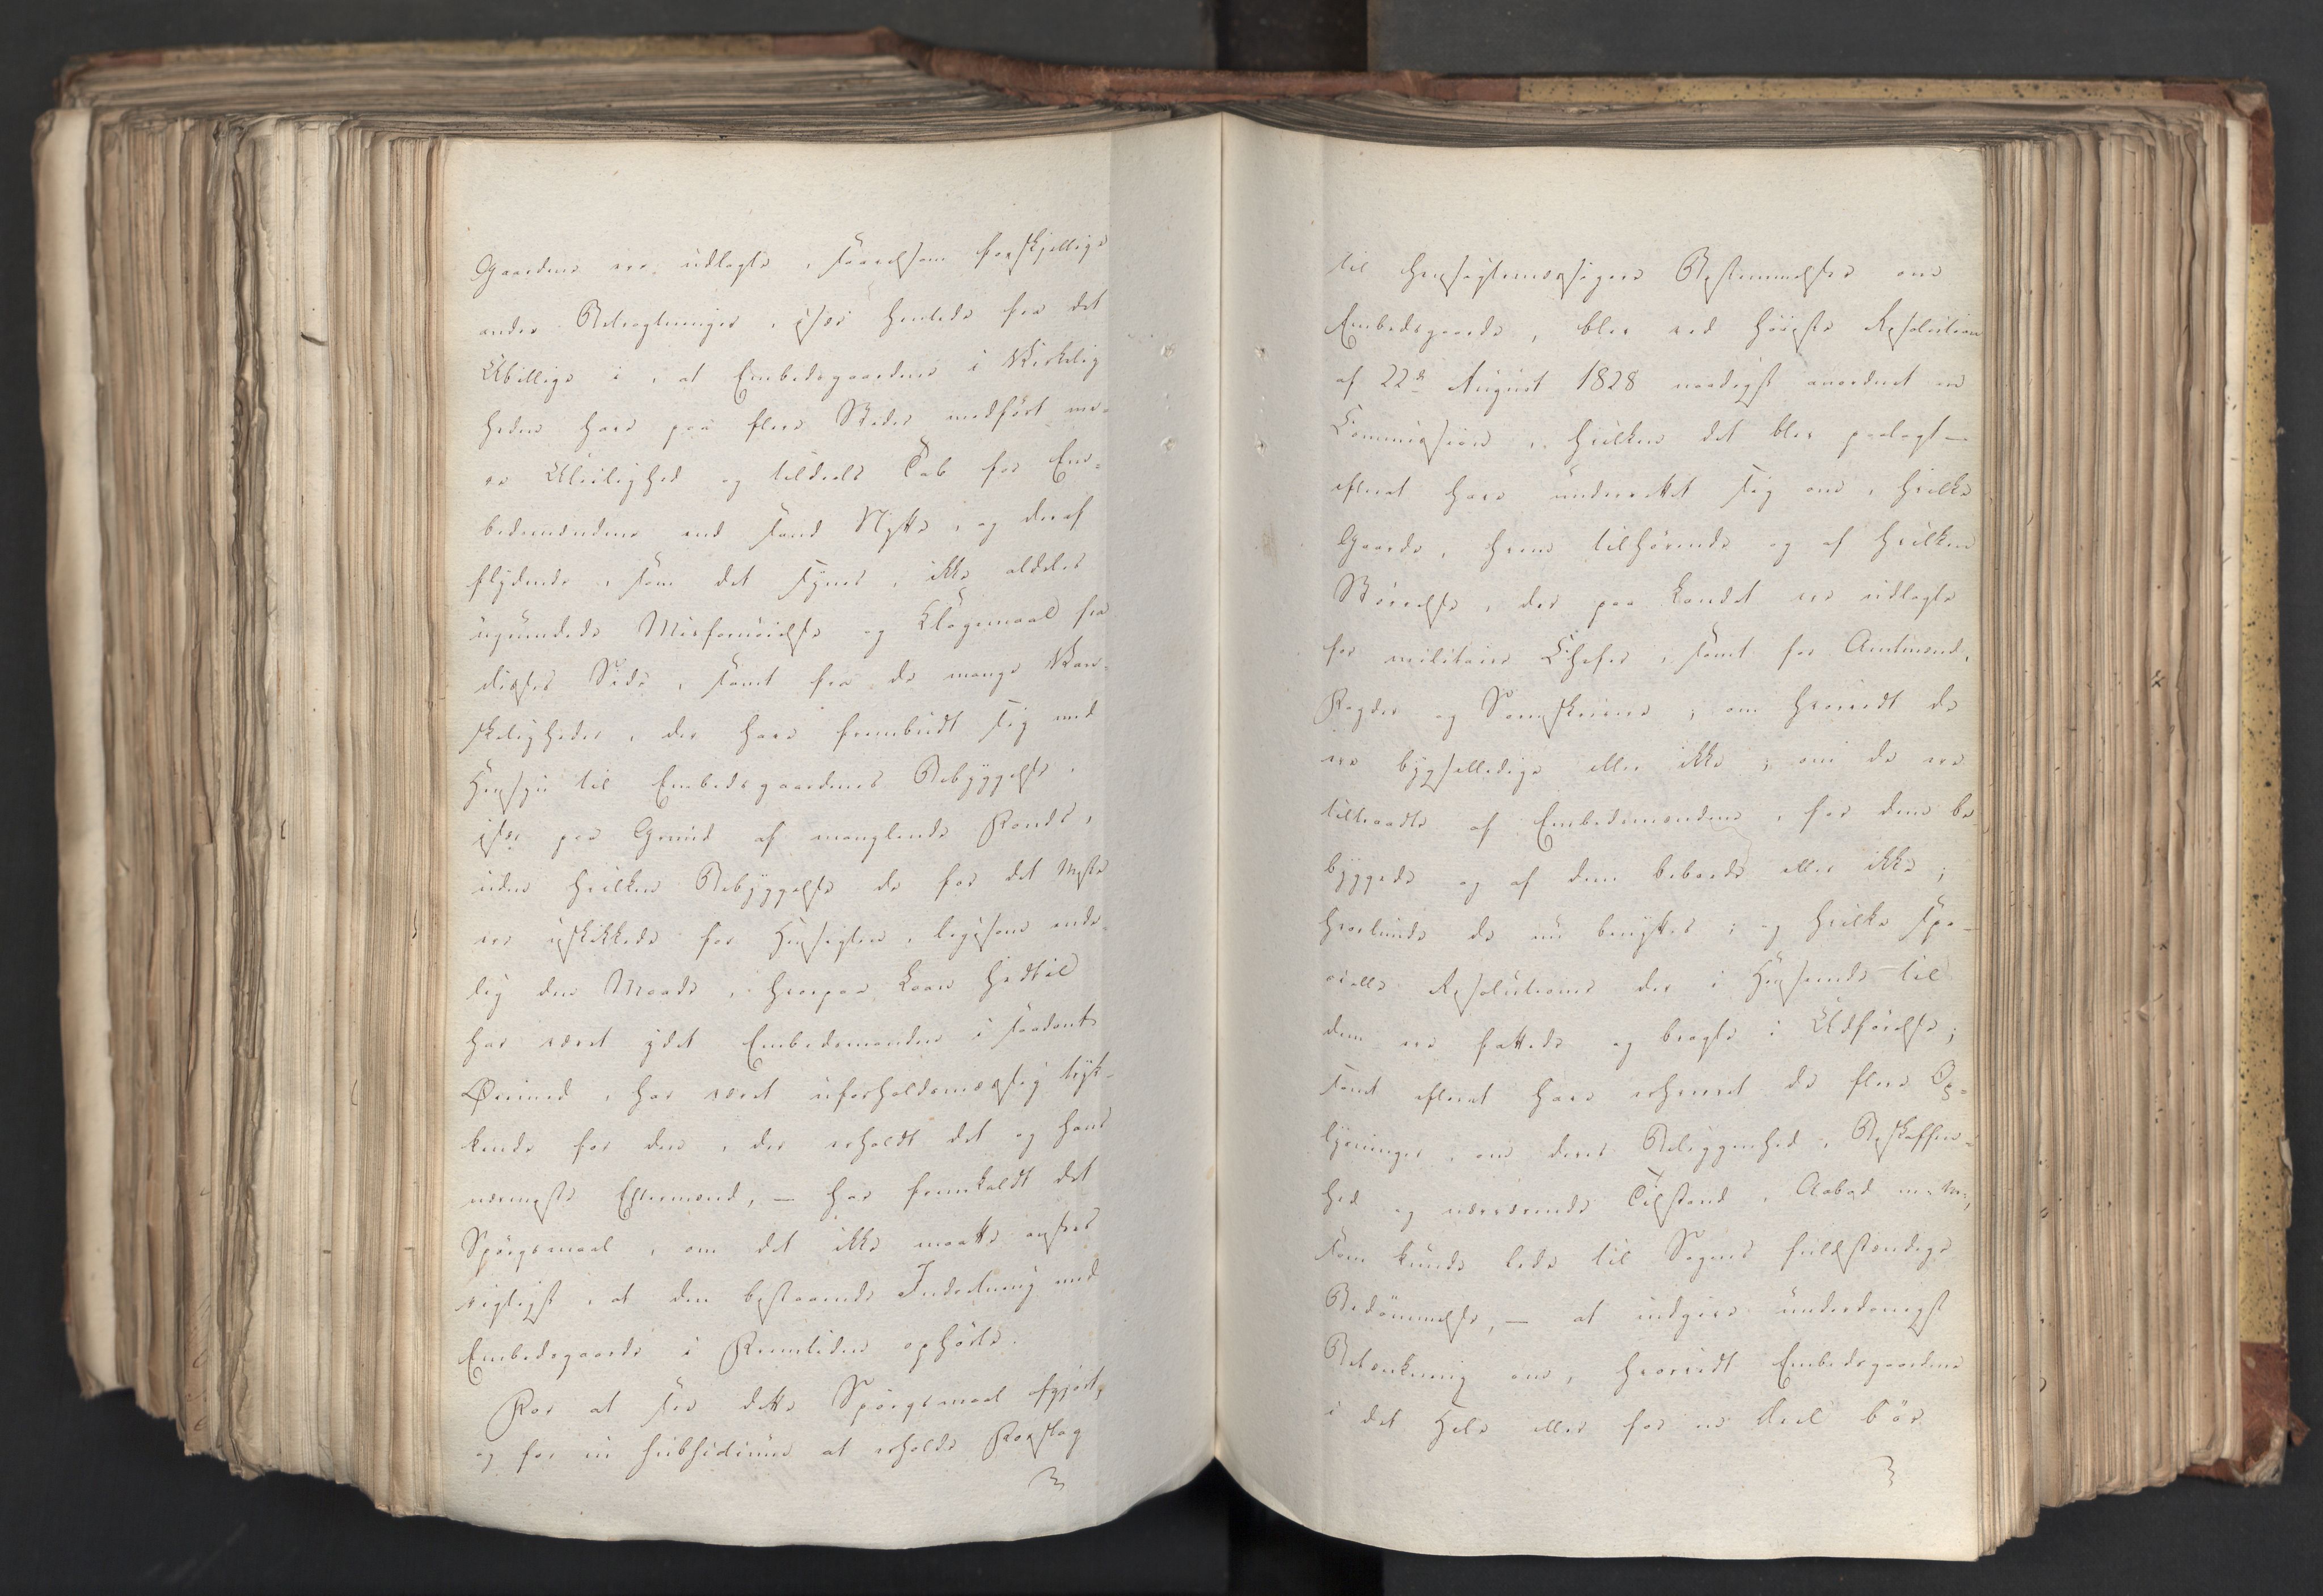 Gaardene ere udlagte, saavelsom forskjellige
andre Betragtninger, især hentede fra det
Ubillige i, at Embedsgaardene i Virkelig
heden have paa flere Steder medført me-
re Uleilighed og tildeels Tab for Em-
bedsmændene end sand Nytte, og deraf
flydende, som det synes, ikke aldeles
ugrundede Misfornøielse og Klagemaal fra
disses Side, samt fra de mange Van-
skeligheder, der have frembudt sig med
Hensyn til Embedsgaardenes Bebyggelse,
især paa Grund af manglende Fonds,
uden hvilken Bebyggelse de for det Meste
ere uskikkede for Hensigten, ligesom ende-
lig den Maade, hvorpaa Laan hidtil
har været ydet Embedsmanden i saadant
Øiemed, har været uforholdsmæssig tryk-
kende for den, der erholdt det og hans
nærmeste Eftermænd, — har fremkaldt det
Spørgsmaal, om det ikke maatte ansees
rigtigst, at den bestaaende Indretning med
Embedsgaarde i Fremtiden ophørte.
For at see dette Spørgsmaal afgjort,
og for in subsidium at erholde Forslag
til hensigtsmæssigere Bestemmelser om
Embedsgaarde, blev ved høieste Resolution
af 22de August 1828 naadigst anordnet en
Commission, hvilken det blev paalagt —
efterat have underrettet sig om, hvilke
Gaarde, hvem tilhørende og af hvilken
Størrelse, der paa Landet ere udlagte
for militaire Chefer, samt for Amtmænd,
Fogder og Sorenskrivere; om hvorvidt de
ere bygselledige eller ikke; om de ere
tiltraadte af Embedsmændene, for dem be-
byggede og af dem beboede eller ikke;
hvorlunde de nu benyttes; og hvilke spe-
cielle Resolutioner der i Henseende til
dem ere fattede og bragte i Udførelse;
samt efterat have erhvervet de flere Op-
lysninger, om deres Beliggenhed, Beskaffen-
hed og nærværende Tilstand, Aabod m: M:,
som kunde lede til Sagens fuldstændige
Bedømmelse, — at indgive underdanigst
Betænkning om, hvorvidt Embedsgaardene
i det Hele eller for en Deel bør